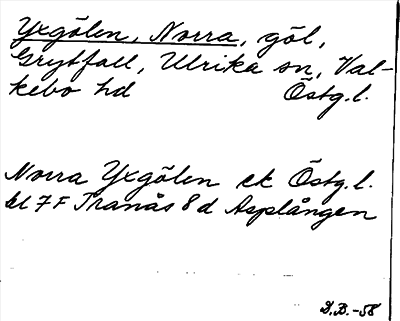 Yxgölen, Norra, göl,
Grytfall, Ulrika sn, Val-
kebo hd Östg.l.
Norra Yxgölen ek Östg.l.
bl 7 F Tranås 8 d Asplången
D.B.-58